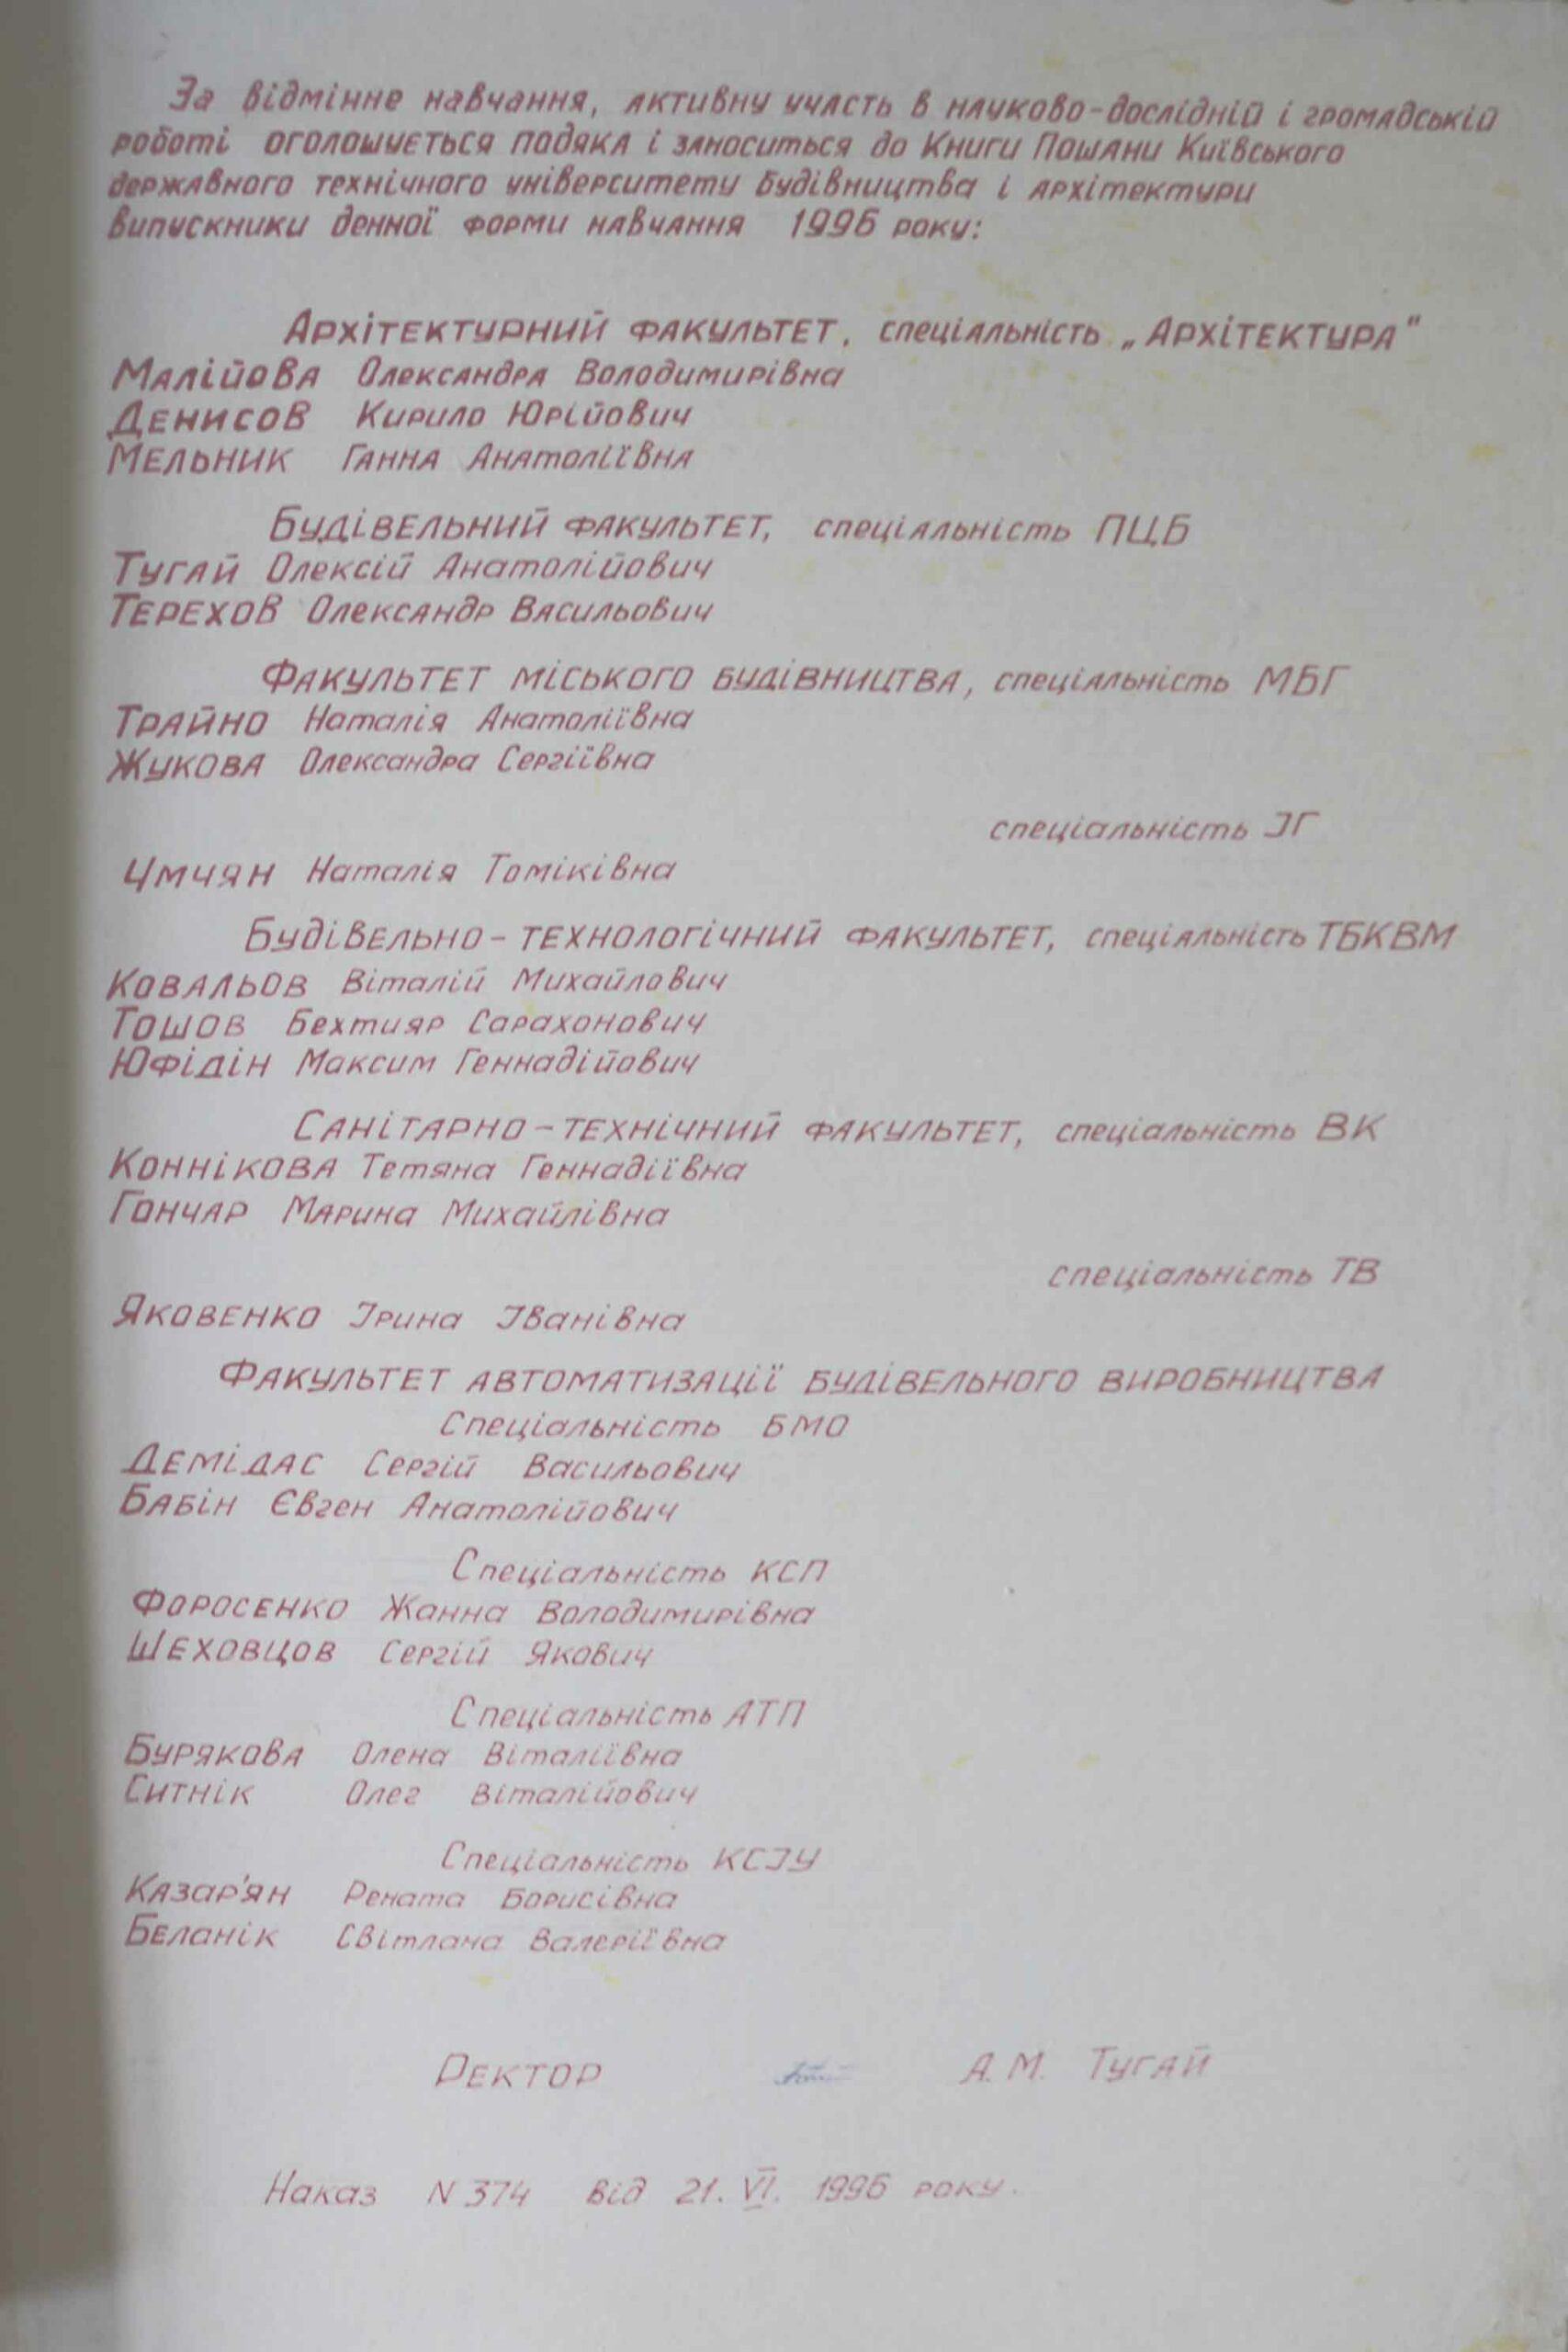 За відмінне навчання, активну участь в науково-дослідній і громадській
роботі оголошується подяка і заноситься до Книги Пошани Київського
державного технічного університету будівництва і архітектури
випускники денної форми навчання 1996 року:
Архітектурний факультет, спеціальність „Архітектура"
Малійова Олександра Володимирівна
Денисов Кирило Юрійович
Мельник Ганна Анатоліївна
Будівельний факультет, спеціальність ПЦБ
Тугай Олексій Анатолійович
Терехов Олександр Васильович
Факультет міського будівництва, спеціальність МБГ
Трайно Наталія Анатоліївна
Жукова Олександра Сергіївна
спеціальність ІГ
Чмчян Наталія Томіківна
Будівельно-технологічний факультет, спеціальність ТБКВМ
Ковальов Віталій Михайлович
Тошов Бехтияр Сарахонович
Юфідін Максим Геннадійович
Санітарно-технічний факультет, спеціальність ВК
Коннікова Тетяна Геннадіївна
Гончар Марина Михайлівна
спеціальність ТВ
Яковенко Ірина Іванівна
Факультет автоматизації будівельного виробництва
Спеціальність БМО
Демідас Сергій Васильович
Бабін Євген Анатолійович
Спеціальність КСП
Форосенко Жанна Володимирівна
Шеховцов Сергій Якович
Спеціальність АТП
Бурякова Олена Віталіївна
Ситнік Олег Віталійович
Спеціальність КСІУ
Казар'ян Рената Борисівна
Беланік Світлана Валеріївна
Ректор А.М. Тугай
Наказ N 374 від 21. VI. 1996 року.